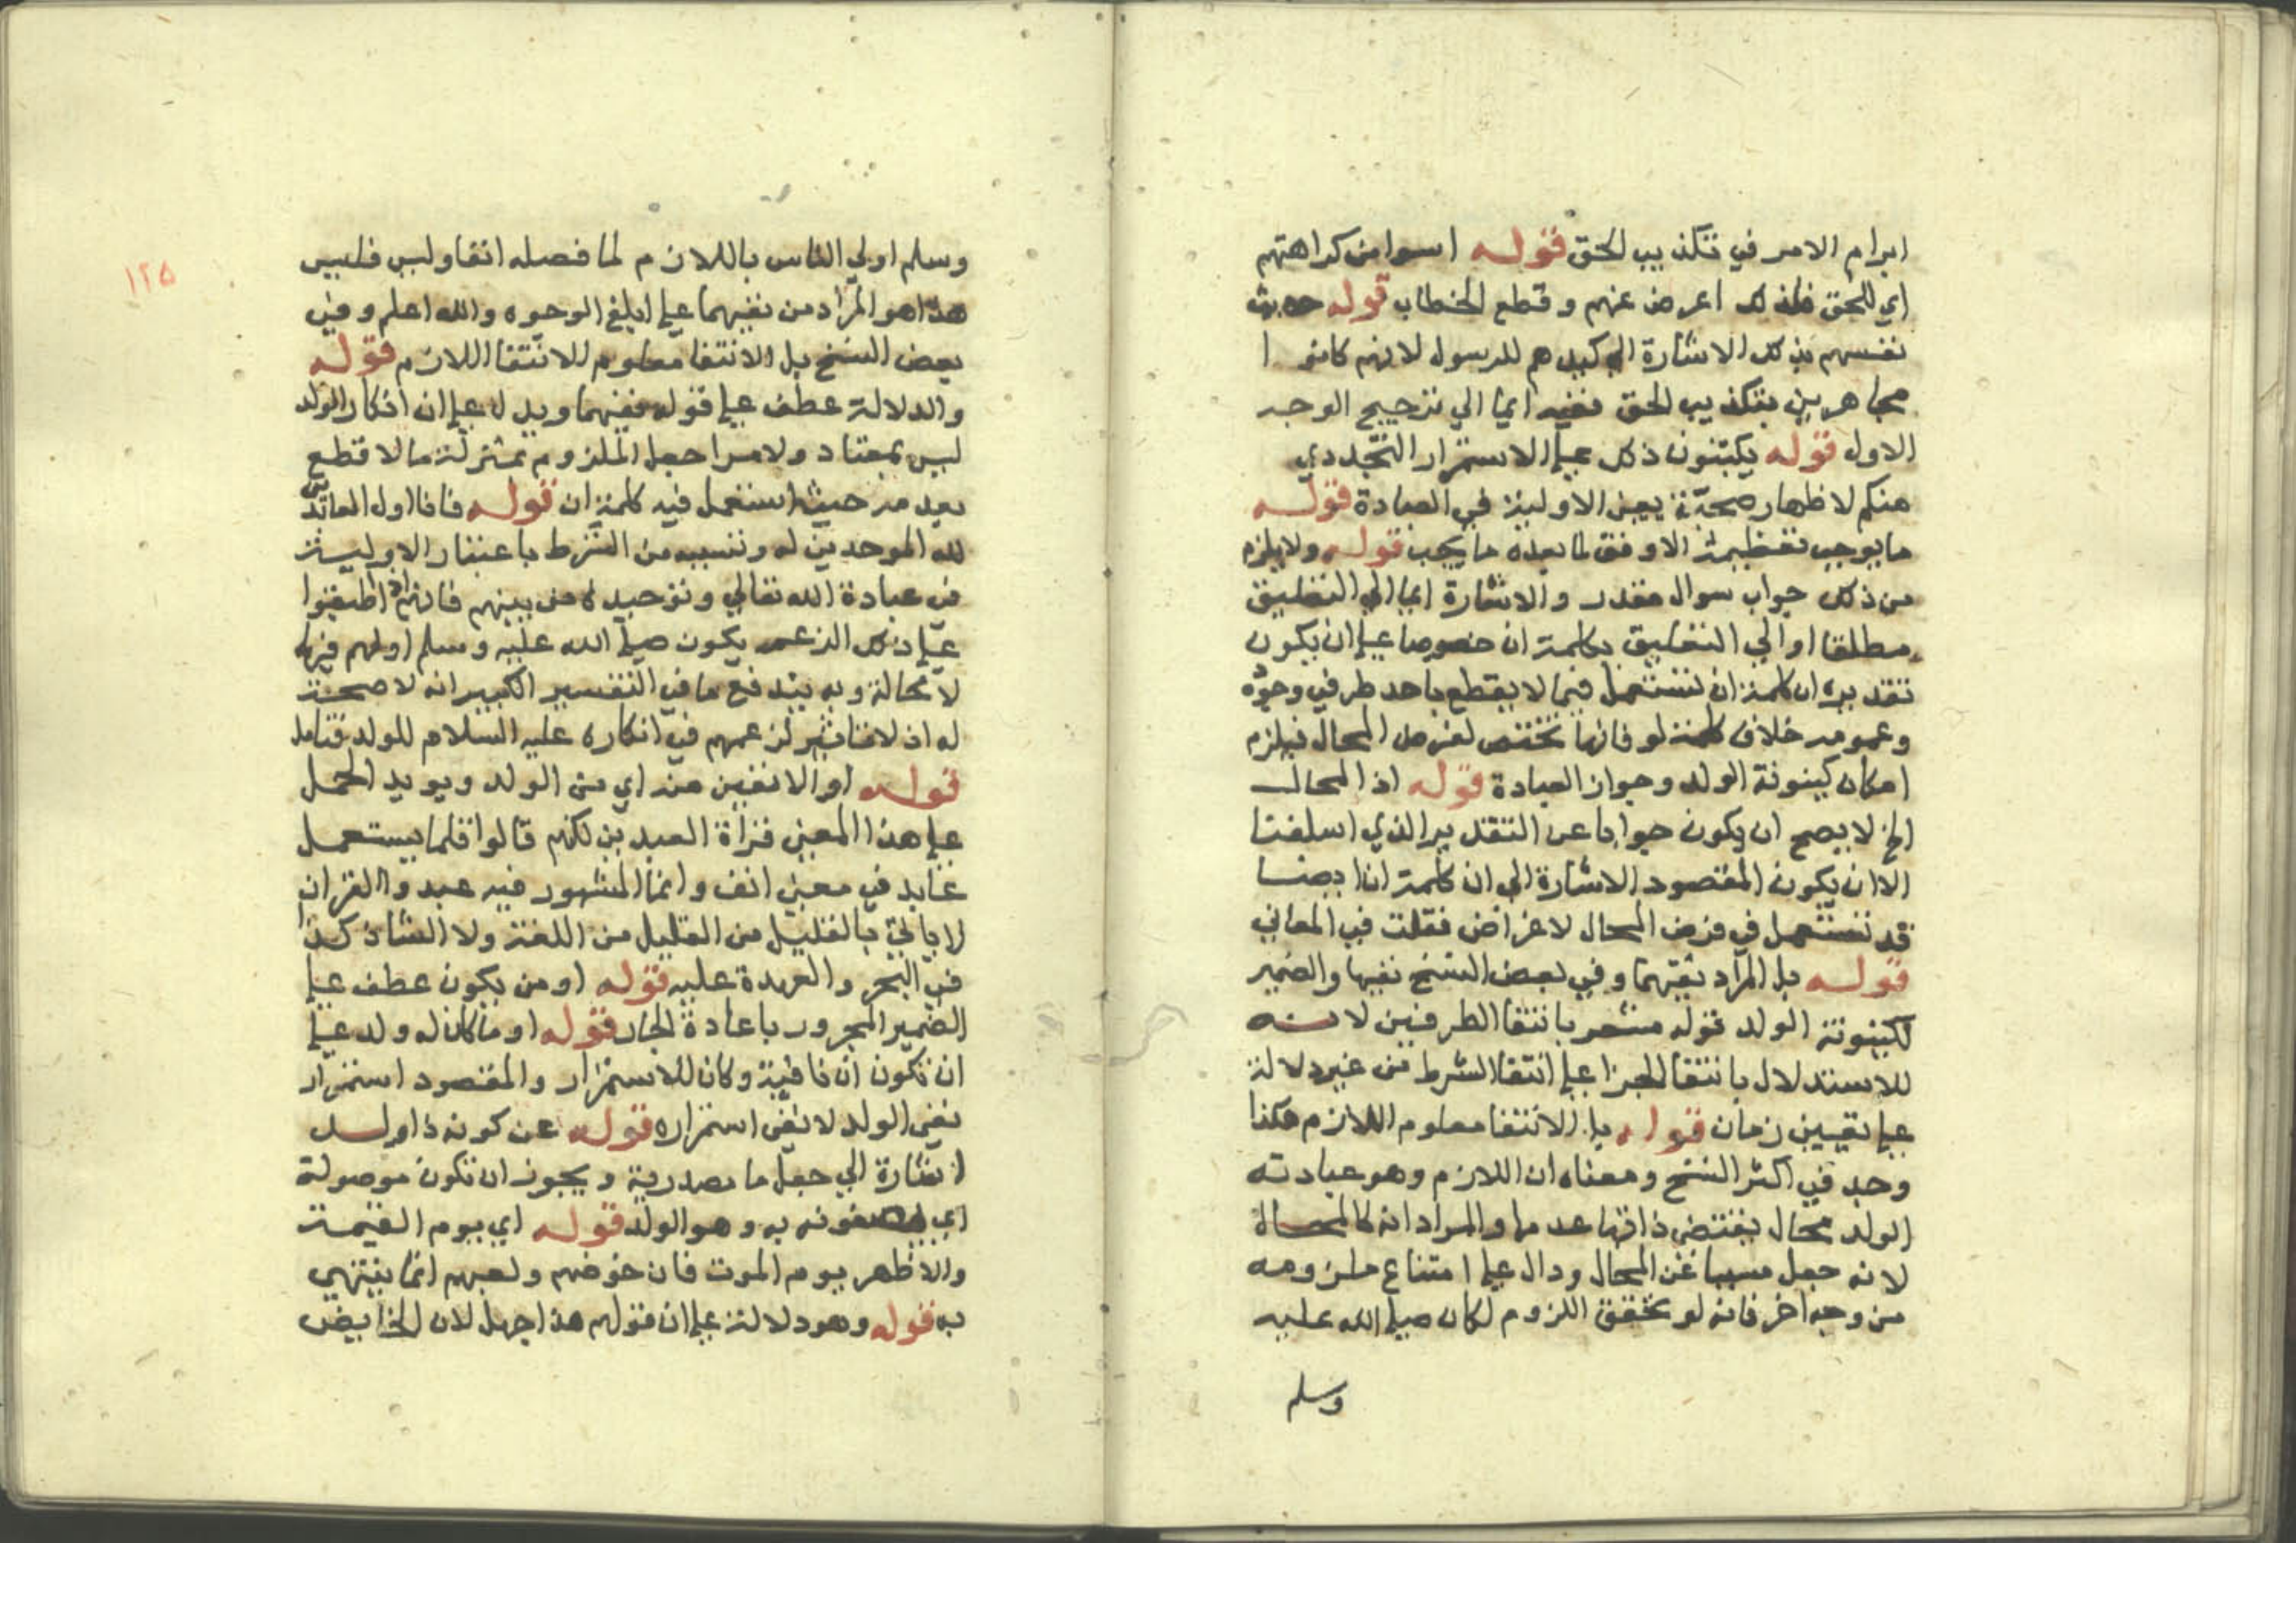 ابرام الامر في تكذيب الحق قوله اسوا من كراهتهم
اي للحق فلذلك اعرض عنهم وقطع الخطاب قوله حديث
نفسهم بذلك الاشارة الي كيدهم للرسول لانهم كانوا
مجاهرين بتكذيب الحق ففيه ايما الي ترجيح الوجه
الاول قوله يكتبون ذلك علي الاستمرار التجددي
منكم لاظهار صحة يعني الاولية في العبادة قوله
ما يوجب تعظيمه الاوفق لما بعده ما يجب قوله ولا يلزم
من ذلك جواب سوال مقدر والاشارة اما الي التعليق
مطلقا او الي التعليق بكلمة ان خصوصا علي ان يكون
تقديره ان كلمة ان تستعمل فيما لا يقطع باحد طرفي وجوده
وعدمه خلاف كلمة لو فانها تختص لفرض المحال فيلزم
امكان كينونة الولد وجواز العبادة قوله اذ المحال
الخ لا يصح ان يكون جوابا عن التقدير الذي اسلفنا
الا ان يكون المقصود الاشارة الي ان كلمة ان ايضا
قد تستعمل في فرض المحال لاغراض فصلت في المعاني
قوله بل المراد نفيهما وفي بعض النسخ نفيها والضمير
لكينونة الولد قوله مشعر بانتفا الطرفين لانه
للاستدلال بانتفا الجزا علي انتفا الشرط من غير دلالة
علي تعيين زمان قوله بل الانتفا معلوم اللازم هكذا
وجد في اكثر النسخ ومعناه ان اللازم وهو عبادته
الولد محال يقتضي ذاتها عدمها والمراد انه كالمحال
لانه جعل مسببا عن المحال ودال علي امتناع ملزومه
من وجه اخر فانه لو تحقق اللزوم لكان صلي الله عليه
وسلم
١٢٥
وسلم اولي الناس باللازم لما فصله انفا وليس فليس
هذا هو المراد من نفيهما علي ابلغ الوجوه والله اعلم وفي
بعض النسخ بل الانتفا معلوم لانتفا اللازم قوله
والدلالة عطف علي قوله نفيهما ويدل له علي ان انكار الولد
ليس بعناد ولا مرا جعل الملزوم بمنزلة ما لا قطع
بعدمه حيث استعمل فيه كلمة ان قوله فانا اول العابدين
لله الموحدين له وتسببه من الشرط باعتبار الاولية
في عبادة الله تعالي وتوحيده من بينهم فانهم اذا اطبقوا
علي ذلك الزعم يكون صلي الله عليه وسلم اولهم فيها
لا محالة وبه يندفع ما في التفسير الكبير انه لا صحة
له اذ لا تاثير لزعمهم في انكاره عليه السلام للولد فتامل
قوله او الانفين منه اي من الولد ويويد الحمل
علي هذا المعني قراة العبدين لكنهم قالوا قلما يستعمل
عابد في معني انف وانما المشهور فيه عبد والقران
لا ياتي بالقليل من القليل من اللغة ولا الشاذ كذا
في البحر والعهدة عليه قوله او من يكون عطف علي
الضمير المجرور باعادة الجار قوله او ما كان له ولد علي
ان تكون ان نافية وكان للاستمرار والمقصود استمرار
نفي الولد لا نفي استمراره قوله عن كونه ذا ولد
اشارة الي جعل ما مصدرية ويجوز ان تكون موصولة
اي يصفونه به وهو الولد قوله اي يوم القيمة
والاظهر يوم الموت فان خوضهم ولعبهم انما ينتهي
به قوله وهو دلالة علي ان قولهم هذا جهل لان الخايض